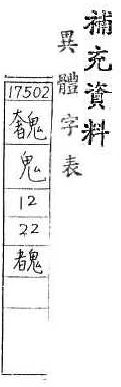 補充資料
異體字表
17502
鬼
12
22